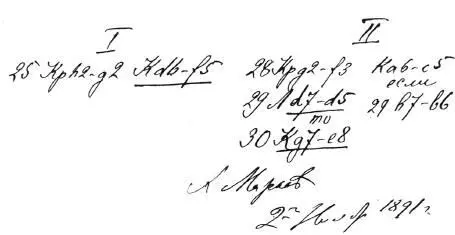 I II
25 Крh2-g2 Кd6-f5 28 Крg2-f3 Ка6-c5
если
29 Лd7-d5 29 b7-b6
то
30 Кg7-e8
А Марков
1891 г.